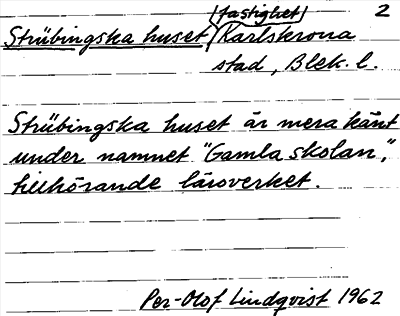 (fastighet) 2
Strübingska huset Karlskrona
stad, Blek. l.
Strübingska huset är mera känt
under namnet "Gamla skolan,"
tillhörande läroverket.
Per-Olof Lindqvist 1962